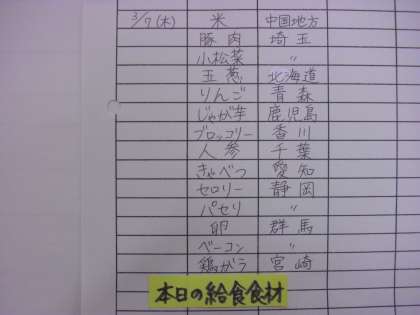 3/7(木) 米 中国地方
豚肉 埼玉
小松菜 〃
玉葱 北海道
りんご 青森
じゃが芋 鹿児島
ブロッコリー 香川
人参 千葉
きゃべつ 愛知
セロリー 静岡
パセリ 〃
卵 群馬
ベーコン 〃
鶏がら 宮崎
本日の給食食材